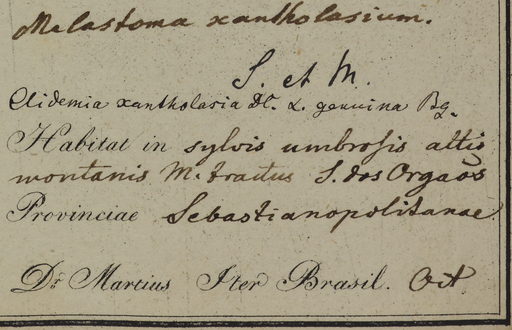 Melastoma xantholasium.
S. et M.
Clidemia xantholasia DC. α. genuina Bg.
Habitat in sylvis umbrosis altis
montanis M. tractus S. dos Orgaõs
Provinciae Sebastianopolitanae.
Dr. Martius Iter Brasil. Oct